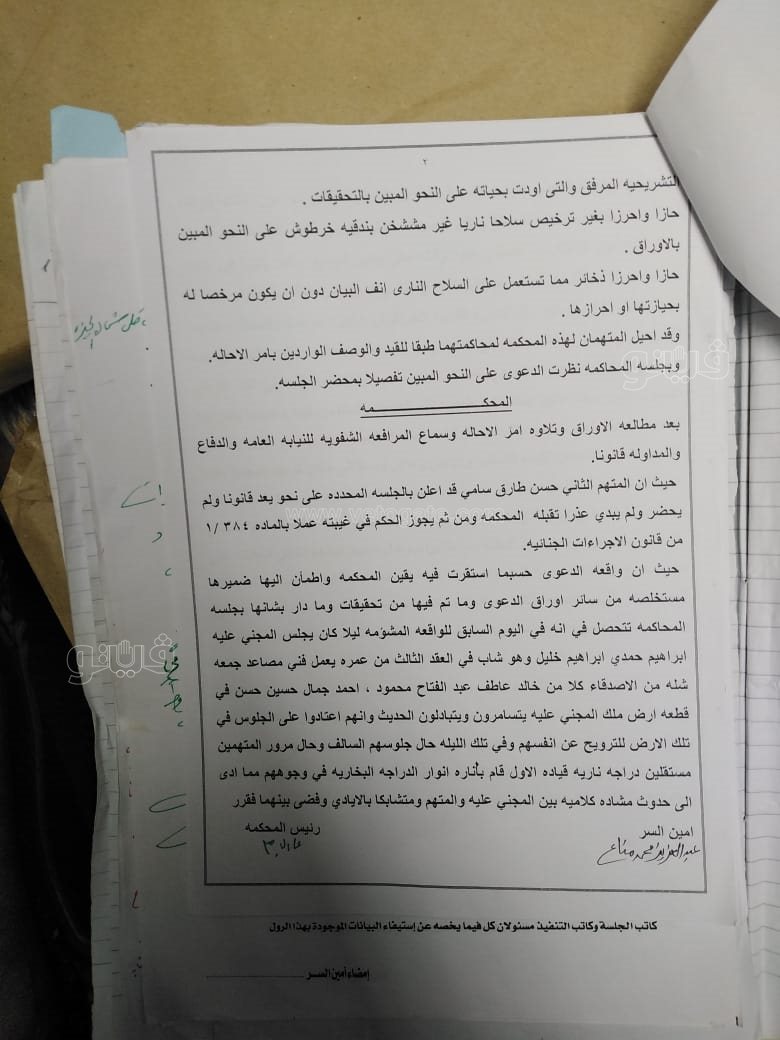 ٢
التشريحيه المرفق والتى اودت بحياته على النحو المبين بالتحقيقات .
حازا واحرزا بغير ترخيص سلاحا ناريا غير مششخن بندقيه خرطوش على النحو المبين
بالاوراق .
حازا واحرزا ذخائر مما تستعمل على السلاح النارى انف البيان دون ان يكون مرخصا له
بحيازتها او احرازها .
وقد احيل المتهمان لهذه المحكمه لمحاكمتهما طبقا للقيد والوصف الواردين بامر الاحاله.
وبجلسه المحاكمه نظرت الدعوى على النحو المبين تفصيلا بمحضر الجلسه.
المحكـــــــــــــــــمه
بعد مطالعه الاوراق وتلاوه امر الاحاله وسماع المرافعه الشفويه للنيابه العامه والدفاع
والمداوله قانونا.
حيث ان المتهم الثاني حسن طارق سامي قد اعلن بالجلسه المحدده على نحو يعد قانونا ولم
يحضر ولم يبدي عذرا تقبله المحكمه ومن ثم يجوز الحكم في غيبته عملا بالماده ٣٨٤ /١
من قانون الاجراءات الجنائيه.
حيث ان واقعه الدعوى حسبما استقرت فيه يقين المحكمه واطمأن اليها ضميرها
مستخلصه من سائر اوراق الدعوى وما تم فيها من تحقيقات وما دار بشانها بجلسه
المحاكمه تتحصل في انه في اليوم السابق للواقعه المشؤمه ليلا كان يجلس المجني عليه
ابراهيم حمدي ابراهيم خليل وهو شاب في العقد الثالث من عمره يعمل فني مصاعد جمعه
شله من الاصدقاء كلا من خالد عاطف عبد الفتاح محمود ، احمد جمال حسين حسن في
قطعه ارض ملك المجني عليه يتسامرون ويتبادلون الحديث وانهم اعتادوا على الجلوس في
تلك الارض للترويح عن انفسهم وفي تلك الليله حال جلوسهم السالف وحال مرور المتهمين
مستقلين دراجه ناريه قياده الاول قام بأناره انوار الدراجه البخاريه في وجوههم مما ادى
الى حدوث مشاده كلاميه بين المجني عليه والمتهم ومتشابكا بالايادي وفضى بينهما فقرر
امين السر
رئيس المحكمه
كاتب الجلسة وكاتب التنفيذ مسئولان كل فيما يخصه عن إستيفاء البيانات الموجودة بهذا الرول
إمضاء أمين السر
ڤيتو
ڤيتو